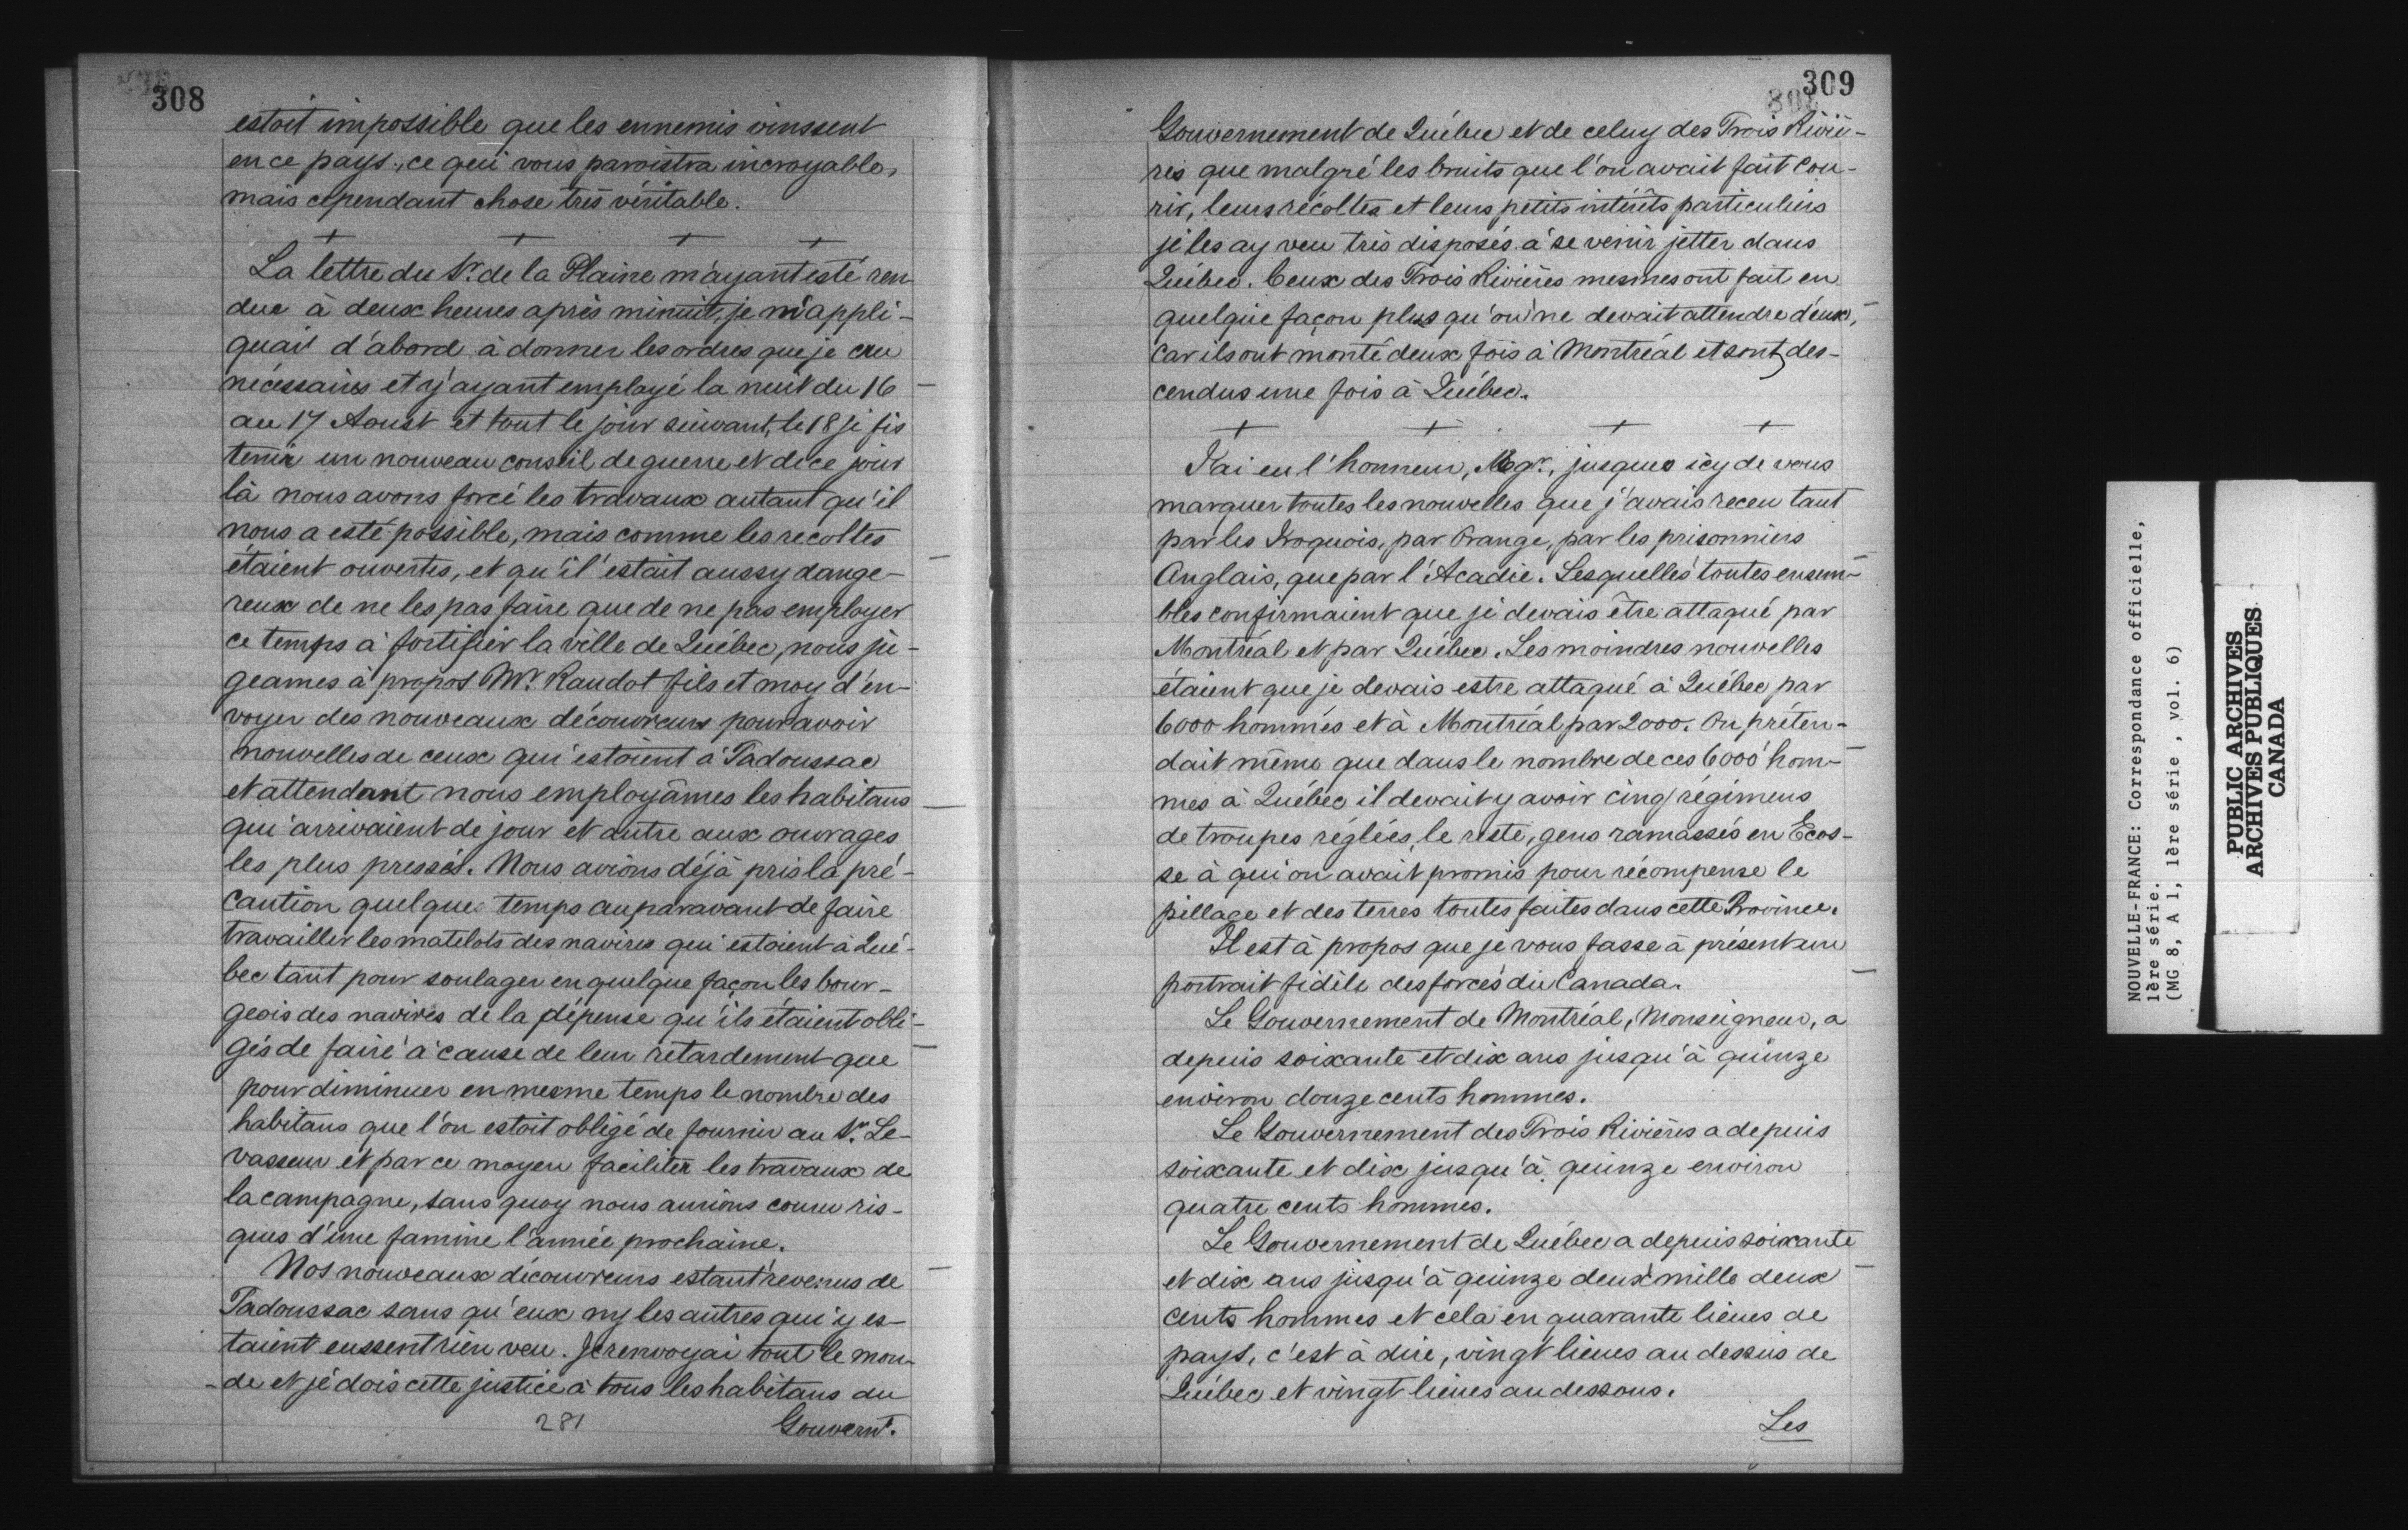 308
estoit impossible que les ennemis vinssent
en ce pays, ce qui vous paroistra incroyable,
mais cependant chose très véritable.
+ + + +
La lettre du Sr. de la Plaine m'ayant esté ren
due à deux heures après minuit, je m'appli-
quait d'abord à donner les ordres que je cru
nécessaires et y ayant employé la nuit du 16
au 17 Aoust et tout le jour suivant, le 18 je fis
tenir un nouveau conseil de guerre et de ce jour
là nous avons forcé les travaux autant qu'il
nous a esté possible, mais comme les recoltes
étaient ouvertes, et qu'il estait aussy dange-
reux de ne les pas faire que de ne pas employer
ce temps à fortifier la ville de Québec, nous ju-
geames à propos Mr. Raudot fils et moy d'en-
voyer des nouveaux découvreurs pour avoir
nouvelles de ceux qui estoient à Tadoussac
et attendant nous employâmes les habitans
qui arrivaient de jour et autre aux ouvrages
les plus pressés. Nous avions déjà pris la pré-
caution quelque temps auparavant de faire
travailler les matelots des navires qui estoient à Qué-
bec tant pour soulager en quelque façon les bour-
geois des navires de la dépense qu'ils étaient obli-
gés de faire à cause de leur retardement que
pour diminuer en mesme temps le nombre des
habitans que l'on estoit obligé de fournir au Sr. Le-
vasseur et par ce moyen faciliter les travaux de
la campagne, sans quoy nous aurions couru ris-
ques d'une famine l'année prochaine.
Nos nouveaux découvreurs estant revenus de
Tadoussac sans qu'eux ny les autres qui y es-
taient eussent rien veu. Je renvoyai tout le mon-
-de et je dois cette justice à tous les habitans du
281 Gouvernt.
309
Gouvernement de Québec et de celuy des Trois Riviè-
res que malgré les bruits que l'on avait fait cou-
rir, leurs récoltes et leurs petits intérêts particuliers
je les ay veu très disposés à se venir jetter dans
Québec. Ceux des Trois Rivières mesmes ont fait en
quelque façon plus qu'on ne devait attendre d'eux,
car ils ont monté deux fois à Montréal et sont des-
cendus une fois à Québec.
+ + + +
J'ai eu l'honneur, Mgr., jusques icy de vous
marquer toutes les nouvelles que j'avais receu tant
par les Iroquois, par Orange, par les prisonniers
Anglais, que par l'Acadie. Lesquelles toutes ensem-
bles confirmaient que je devais être attaqué par
Montréal et par Québec. Les moindres nouvelles
étaient que je devais estre attaqué à Québec par
6000 hommes et à Montréal par 2000. On préten-
dait même que dans le nombre de ces 6000 hom-
mes à Québec il devait y avoir cinq régimens
de troupes réglées, le reste, gens ramassés en Ecos-
se à qui on avait promis pour récompense le
pillage et des terres toutes faites dans cette Province.
Il est à propos que je vous fasse à présent un
portrait fidèle des forces du Canada.
Le Gouvernement de Montréal, Monseigneur, a
depuis soixante et dix ans jusqu'à quinze
environ douze cents hommes.
Le Gouvernement des Trois Rivières a depuis
soixante et dix jusqu'à quinze environ
quatre cents hommes.
Le Gouvernement de Québec a depuis soixante
et dix ans jusqu'à quinze deux mille deux
cents hommes et cela en quarante lieues de
pays, c'est à dire, vingt lieues au dessus de
Québec et vingt lieues au dessous.
Les
NOUVELLE-FRANCE: Correspondance officielle,
1ère série.
(MG 8, A 1, 1ère série , vol. 6)
PUBLIC ARCHIVES
ARCHIVES PUBLIQUES
CANADA